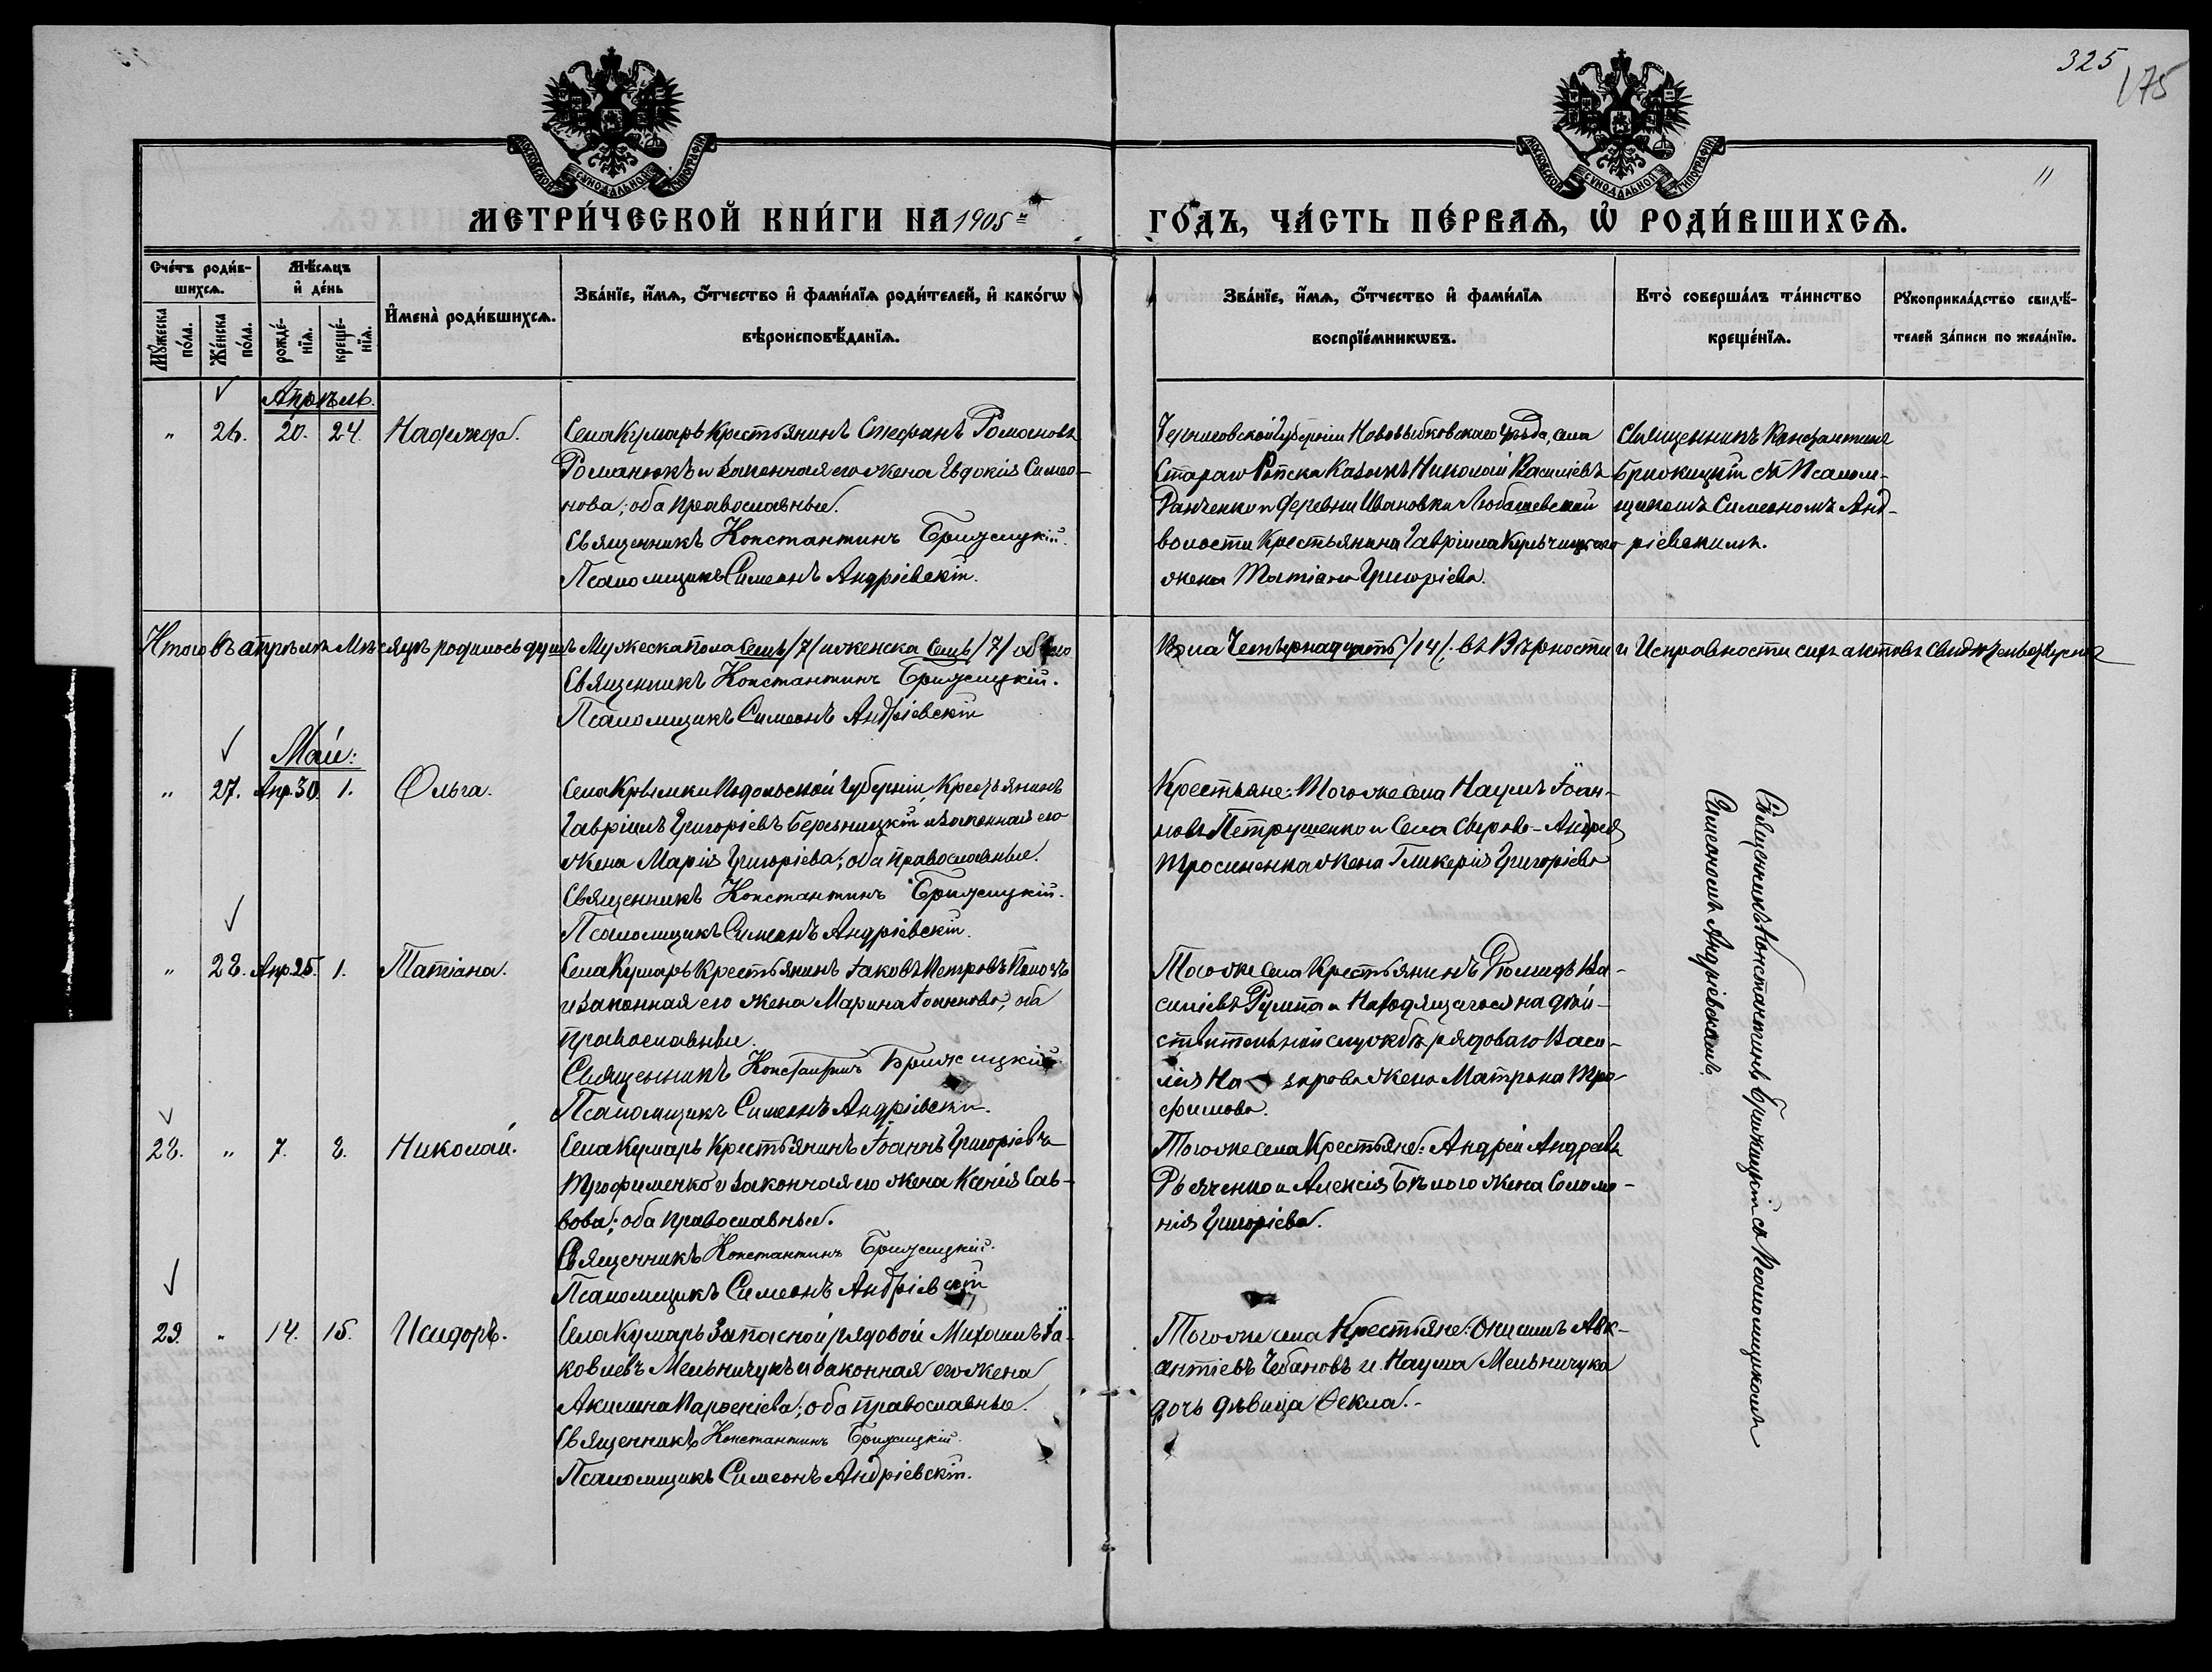 325
175
11
МОСКОВСКОЙ СѴНОДАЛЬНОЙ ТИПОГРАФІИ
МОСКОВСКОЙ СѴНОДАЛЬНОЙ ТИПОГРАФІИ
МЕТРИ́ЧЕСКОЙ КНИ́ГИ НА 1905й
ГО́ДЪ, ЧА́СТЬ ПЕ́РВАѦ, Ѡ҆ РОДИ́ВШИХСѦ.
Сче́тъ роди́в-
шихсѧ.
Мѣ́сѧцъ
и҆ де́нь
Мꙋ́жеска
по́ла.
Же́нска
по́ла.
рожде́-
нїѧ.
креще́-
нїѧ.
И҆мена̀ роди́вшихсѧ.
Зва́нїе, и҆́мѧ, ѻ҆́тчество и҆ фами́лїѧ роди́телей, и҆ како́гѡ
вѣроисповѣ́данїѧ.
Зва́нїе, и҆́мѧ, ѻ҆́тчество и҆ фами́лїѧ
воспрїе́мникѡвъ.
Кто̀ соверша́лъ та́инство
креще́нїѧ.
Рꙋкоприкла́дство свидѣ́-
телей за́писи по жела́нїю.
Апрѣль.
" 26. 20. 24. Надежда.
Села Кумарь Крестьянинъ Стефанъ Романовъ
Романюкъ и законная его жена Евдокія Симео-
нова; оба православные.
Священникъ Константинъ Бржисицкій.
Псаломщикъ Симеонъ Андріевскій.
Черниговской Губерніи Новозыбковскаго Уѣзда, села
Стараго Ропска Казакъ Николай Василіевъ
Ранченко и деревни Ивановки Любашевской
волости Крестьянина Гавріила Кульчицкаго
жена Татіана Григоріева.
Священникъ Константинъ
съ Псалом-
щикомъ Симеономъ Анд-
ріевскимъ.
Итого въ апрѣлѣ мѣсяцѣ родилось душъ Мужеска пола Семь /7/ и женска Семь /7/ обоего
пола Четырнадцать /14/. въ Вѣрности и Исправности сихъ актовъ свидѣтельствуемъ
Священникъ Константинъ Бржисицкій.
Псаломщикъ Симеонъ Андріевскій
Май:
" 27. Апр. 30. 1. Ольга.
Села Крымки Подольской Губерніи, Крестьянинъ
Гавріилъ Григоріевъ Березницкій и законная его
жена Марія Григоріева; оба православные.
Священникъ Константинъ Бржисицкій.
Псаломщикъ Симеонъ Андріевскій.
Крестьяне: Того же села Наумъ Іоан-
новъ Петрушенко и Села Сырово-Андрея
Тросиненка жена Гликерія Григоріева
" 28. Апр. 25. 1. Татіана.
Села Кумарь Крестьянинъ Іаковъ Петровъ
и законная его жена Марина Іоаннова; оба
православные.
Священникъ Константинъ Бржисицкій
Псаломщикъ Симеонъ Андріевскій.
Того же села Крестьянинъ Діомидъ Ва-
силіевъ и Находящагося на дѣй-
ствительной службѣ рядоваго Васи-
лія Назарова жена Матрона Тро-
фимова.
28. " 7. 8. Николай.
Села Кумарь Крестьянинъ Іоаннъ Григоріевъ
Трофименко и законная его жена Ксенія Сав-
вова; оба православные.
Священникъ Константинъ Бржисицкій.
Псаломщикъ Симеонъ Андріевскій
Того же села Крестьяне: Андрей Андреевъ
и Алексія Бѣлого жена Соломо-
нія Григоріева.
29. " 14. 15. Исидоръ.
Села Кумарь Запасной рядовой Михаилъ Іа-
ковлевъ Мельничукъ и законная его жена
Акилина Парѳеніева; оба православные.
Священникъ Константинъ Бржисицкій.
Псаломщикъ Симеонъ Андріевскій.
Того же села Крестьяне: Онисимъ Авк-
ентіевъ Чебановъ и Наума Мельничука
дочь дѣвица Ѳекла.
Священникъ Константинъ Бржисицкій съ Псаломщикомъ
Симеономъ Андріевскимъ.